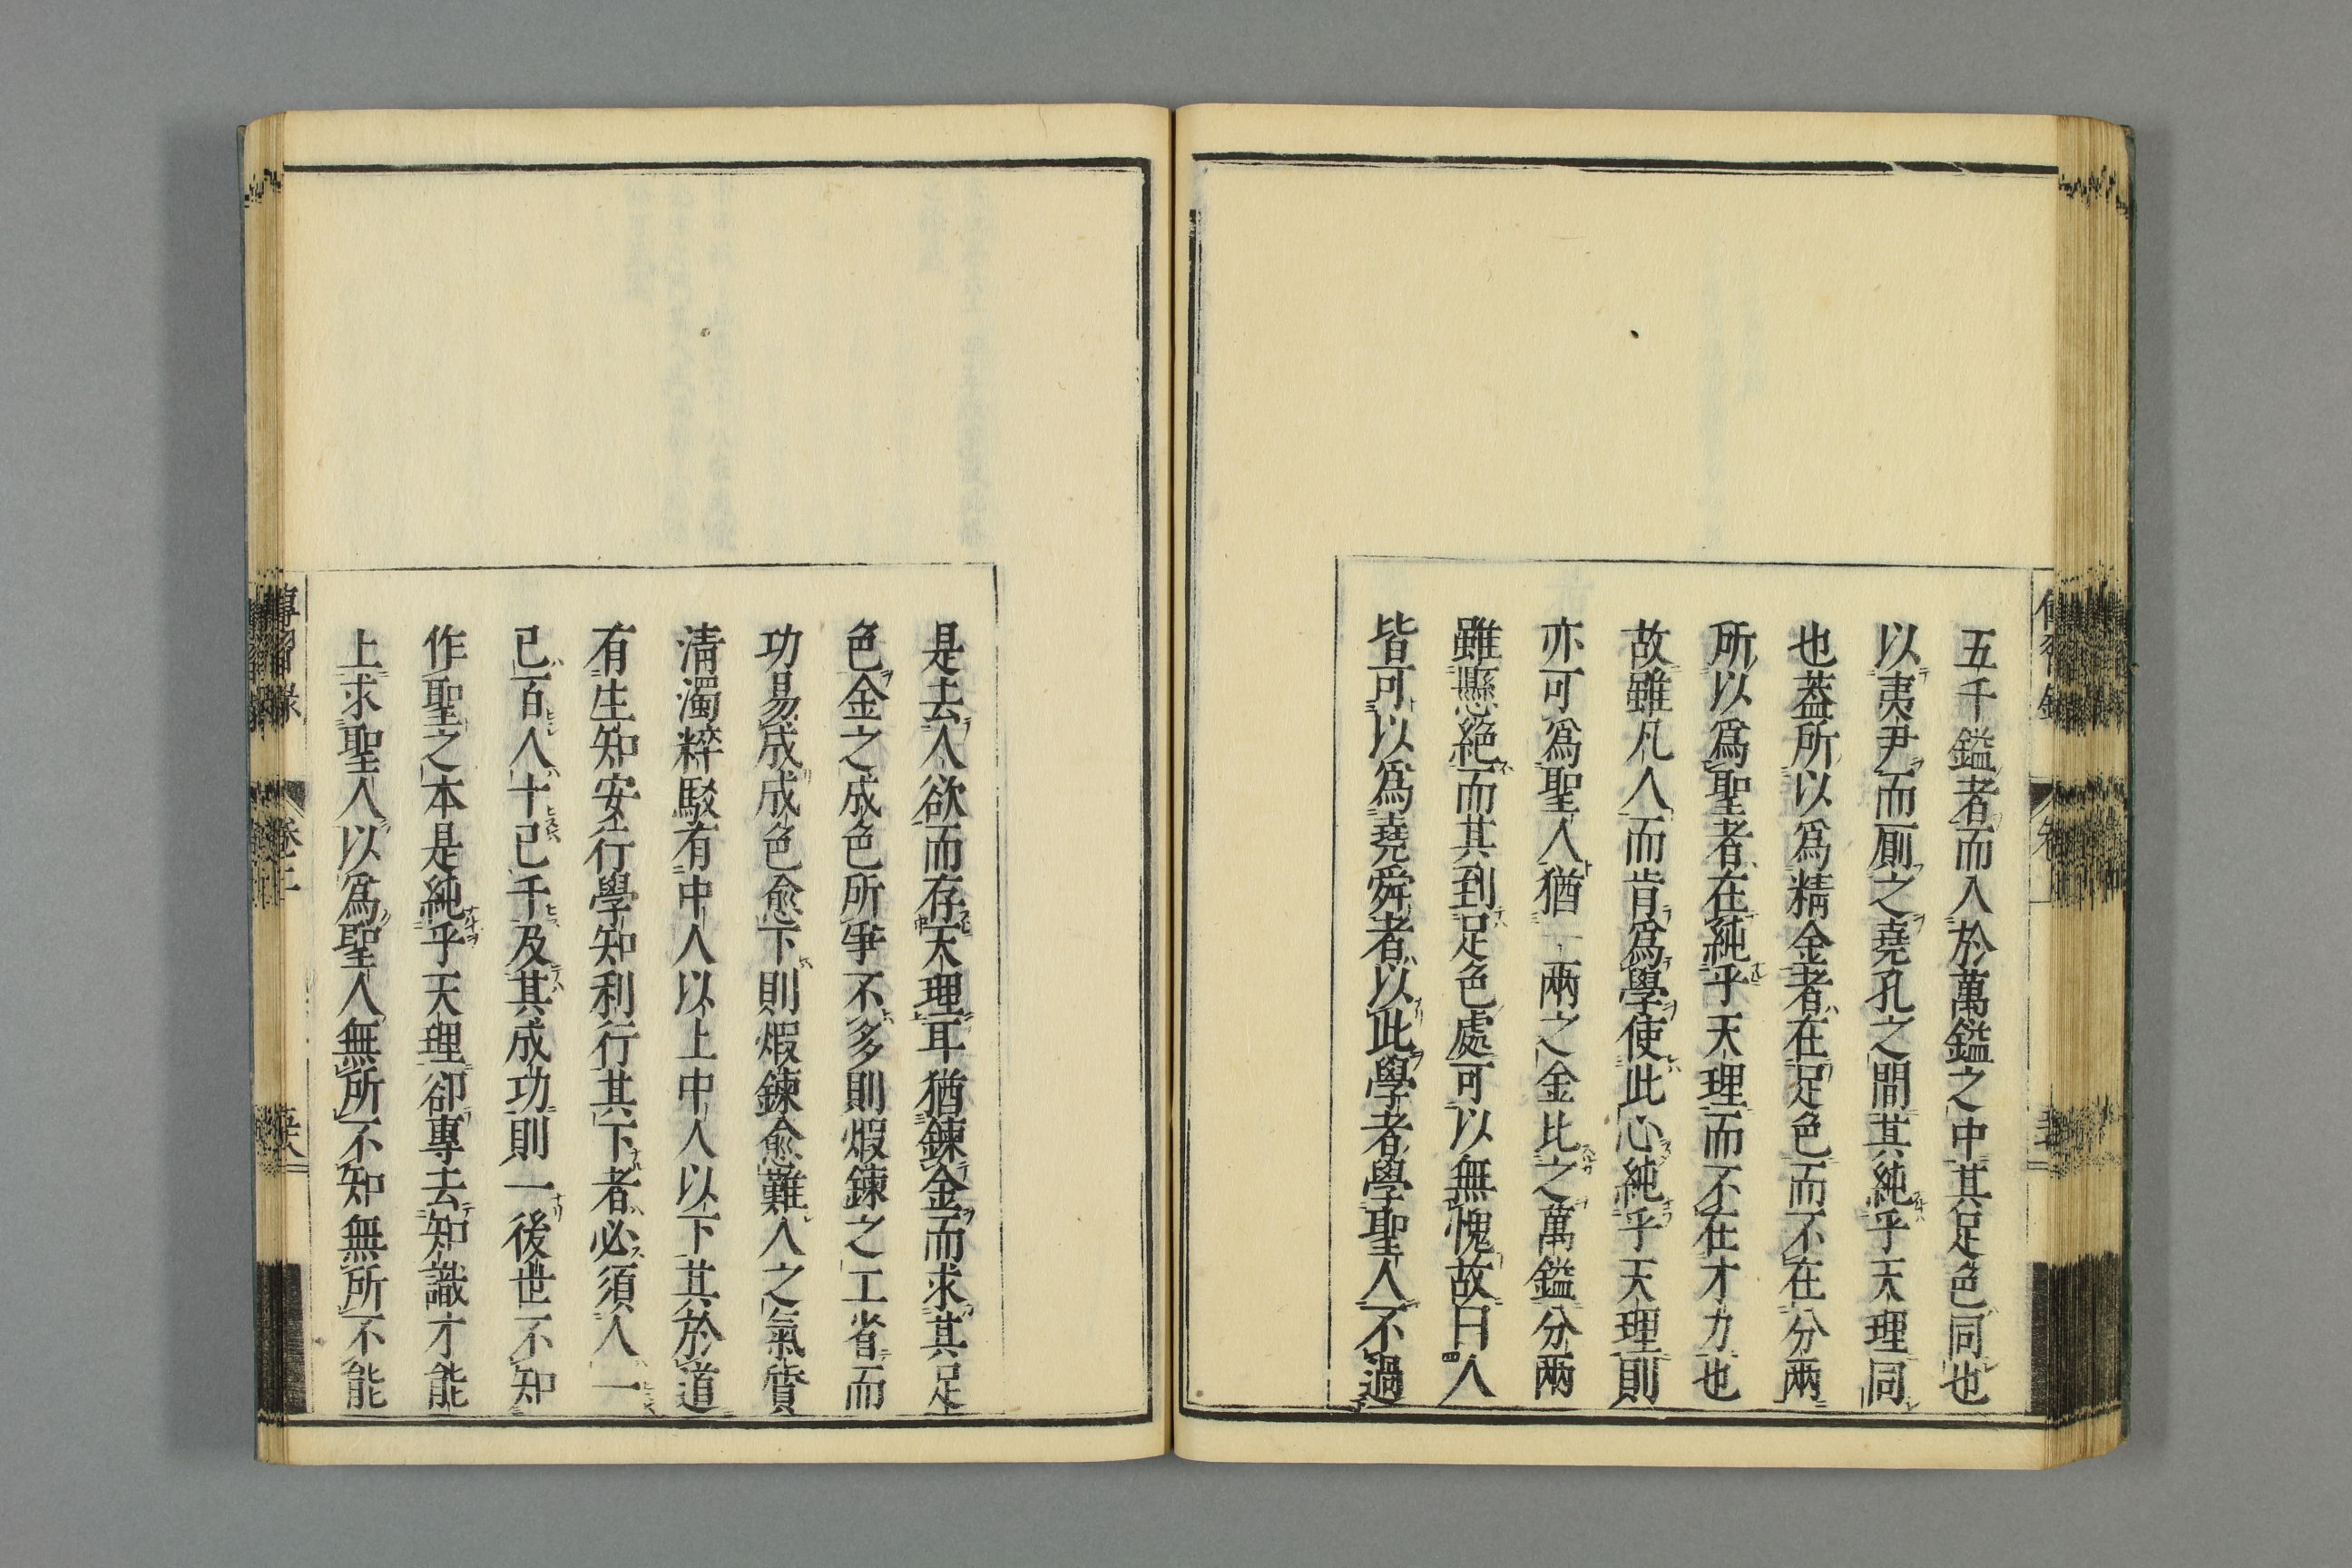 五千鎰者而入於萬鎰之中其足色同也
以夷尹而厠之堯孔之間其純乎天理同
也葢所以爲精金者在足色而不在分兩
所以爲聖者在純乎天理而不在才力也
故雖凡人而肯爲學使此心純乎天理則
亦可爲聖人猶一兩之金比之萬鎰分兩
雖懸絶而其到足色處可以無愧故曰人
皆可以爲堯舜者以此學者學聖人不過
是去人欲而存天理耳猶鍊金而求其足
色金之成色所爭不多則煆鍊之工省而
功易成成色愈下則煆鍊愈難人之氣質
清濁粹駁有中人以上中人以下其於道
有生知安行學知利行其下者必須人一
已百人十已千及其成功則一後世不知
作聖之本是純乎天理卻專去知識才能
上求聖人以爲聖人無所不知無所不能
傳習録 卷上